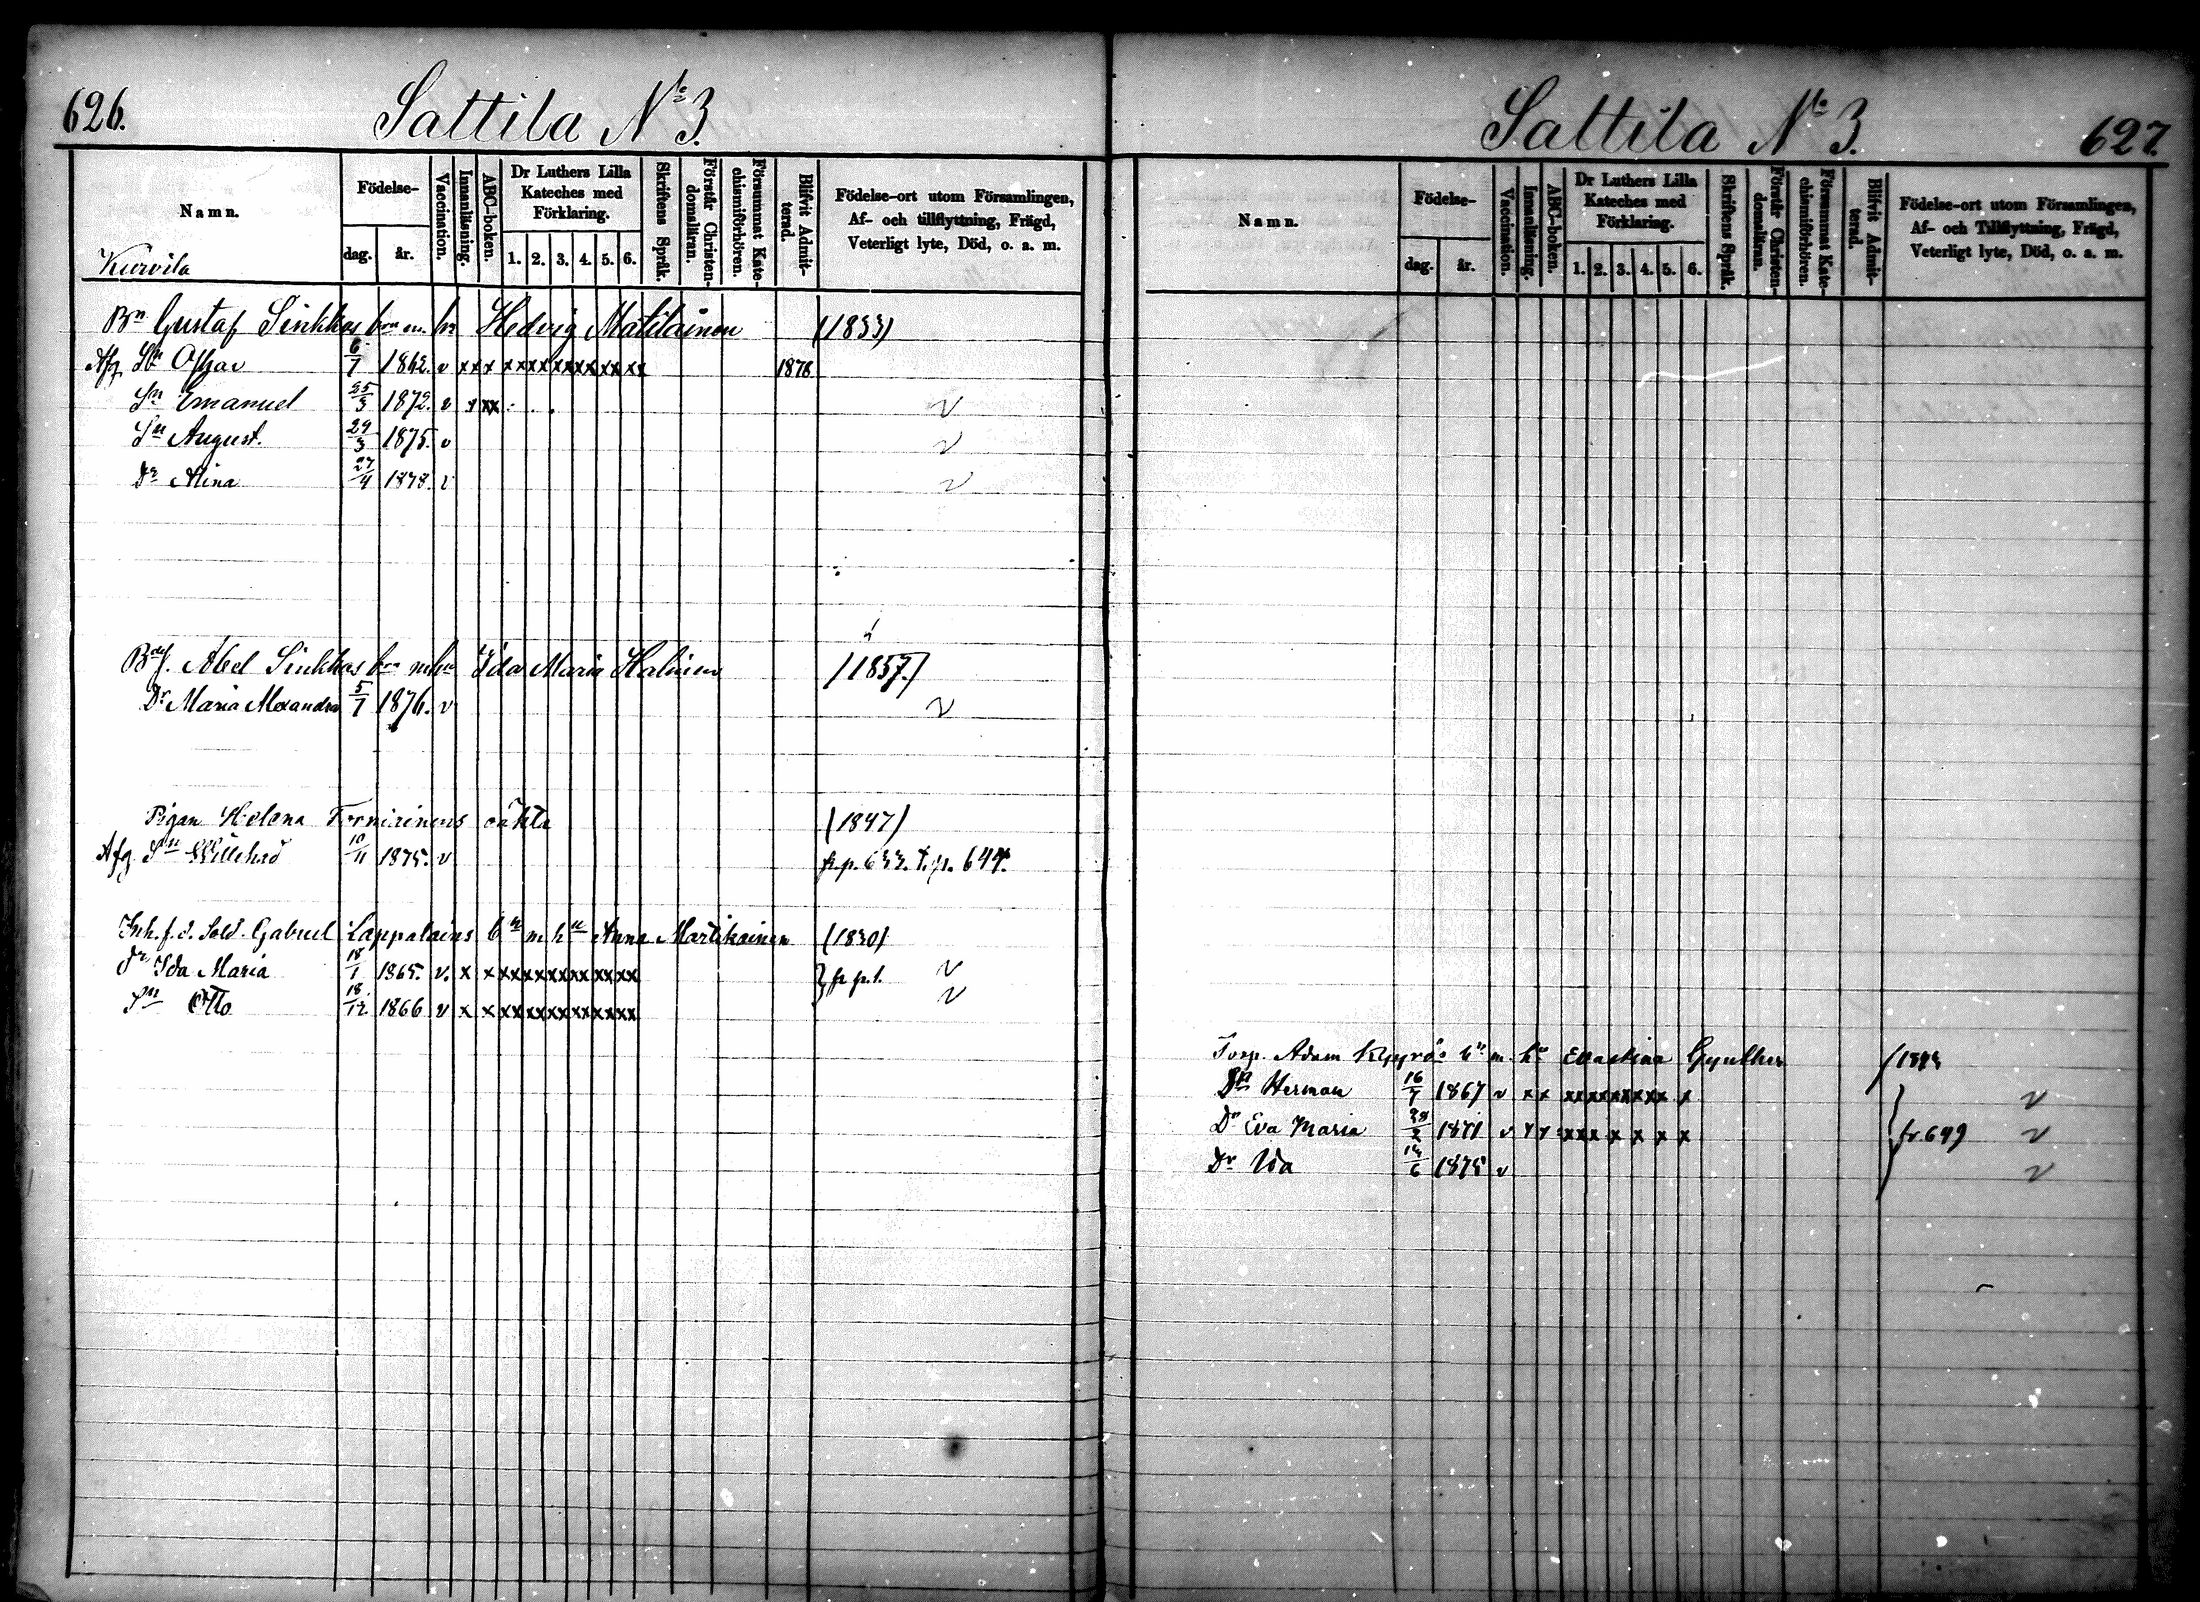 626.
Sattila No 3.
Namn.
Födelse-
dag. år.
Vaccination.
Innanläsning.
ABC-boken.
Dr Luthers Lilla Kateches med Förklaring.
1. 2. 3. 4. 5. 6.
Skriftens Språk.
Förstår Christen-domsläran.
Försummat Kate-chismiförhören.
Blifvit Admit-terad.
Födelse-ort utom Församlingen,
Af- och tillflyttning, Frägd,
Veterligt lyte, Död, o. a. m.
Kurvila
Bn Gustaf Sinkkos bn m. hu Hedvig Matilainen (1833)
Afg. Sn Oskar 6/7 1862. v x x x x x x x x x x x x x x x 1878
Sn Emanuel 25/3 1872. v x xx v
Sn August. 29/3 1875. v v
Dr Mina 27/4 1878. v v
Abel Sinkkos bn m hu Ida Maria Halinen (1857.)
Dr Maria Alexandra 5/7 1876. v v
Pigan Helena oäkta (1847)
Afg. Sn Willehad 10/11 1875. v fr.p. 633. t. p. 644.
Inh. f. d. Sold. Gabriel Lappalains bn m hu Anna Martikainen (1830)
Dr Ida Maria 18/1 1865. v. x x x x x x x x x x x x x x } fr p. 1. v
Sn Otto 18/12 1866 v x x x x x x x x x x x x x x v
Sattila No 3.
627.
Namn.
Födelse-
dag. år.
Vaccination.
Innanläsning.
ABC-boken.
Dr Luthers Lilla Kateches med Förklaring.
1. 2. 3. 4. 5. 6.
Skriftens Språk.
Förstår Christen-domsläran.
Försummat Kate-chismiförhören.
Blifvit Admit-terad.
Födelse-ort utom Församlingen,
Af- och Tillflyttning, Frägd,
Veterligt lyte, Död, o. a. m.
Torp. Adam Kyyrös bn m. hu Evastina Gynther
Sn Herman 16/7 1867 v x x x x x x x x x x x x v
Dr Eva Maria 1871 v x x x x x x x x x } fr. 649 v
Dr Ida 1875 v v